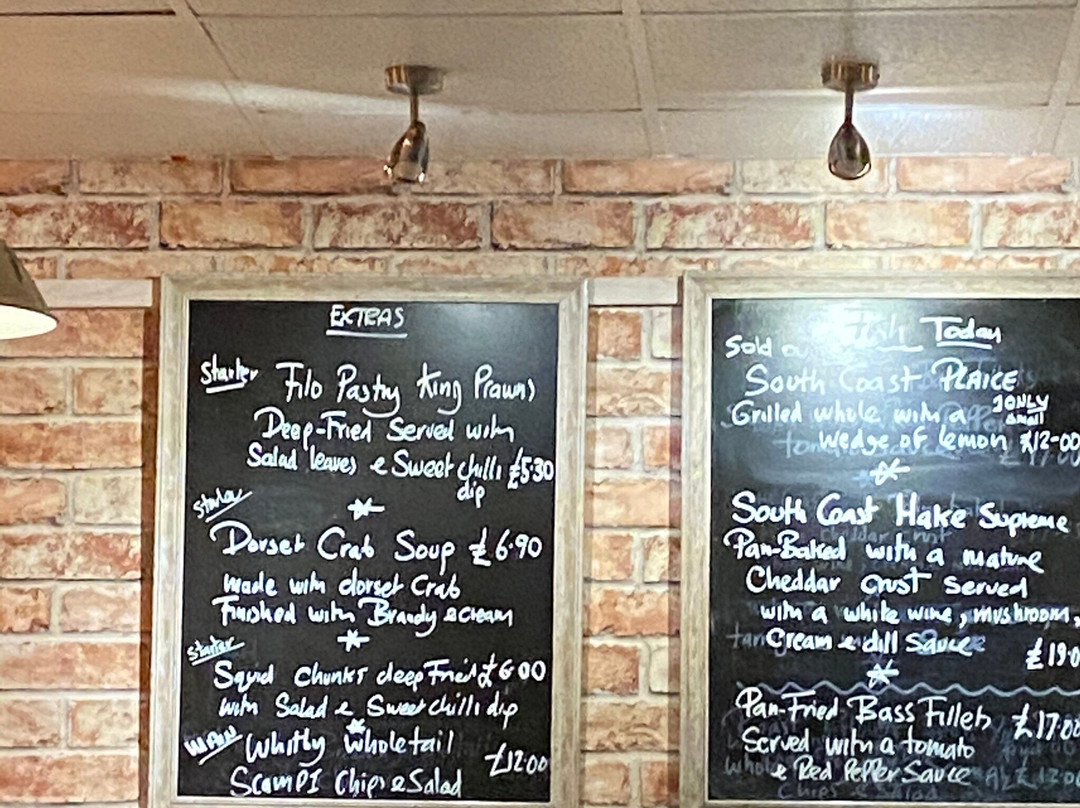 EXTRAS
Starter Filo Pastry King Prawns
Deep-Fried Served with
Salad leaves & Sweet chilli £5.30
dip
Starter
Dorset Crab Soup £6.90
made with dorset Crab
Finished with Brandy & cream
Starter
Squid Chunks deep Fried £6.00
with Salad & Sweet chilli dip
MAIN Whitby wholetail
£12.00
ScamPI Chips & Salad
Fish Today
Sold
South Coast PLAICE
1 ONLY
small
Grilled whole with a
wedge of lemon £12-00
South Coast Hake Supreme
Pan-Baked with a mature
Cheddar Crust Served
with a white wine, mushroom,
Cream & dill Sauce £19.0
Pan-Fried Bass Fillets £17.00
Served with a tomato
& Red Pepper Sauce